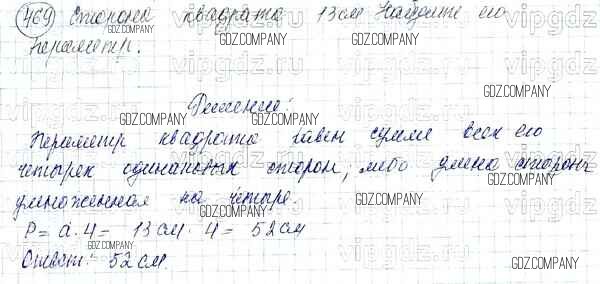 469 Сторона квадрата 13см Найдите его
периметр.
Решение:
Периметр квадрата равен сумме всех его
четырех одинаковых сторон, либо длина стороны
умноженная на четыре.
P = a · 4 = 13см · 4 = 52см
Ответ: 52 см.
GDZ.COMPANY
vipgdz